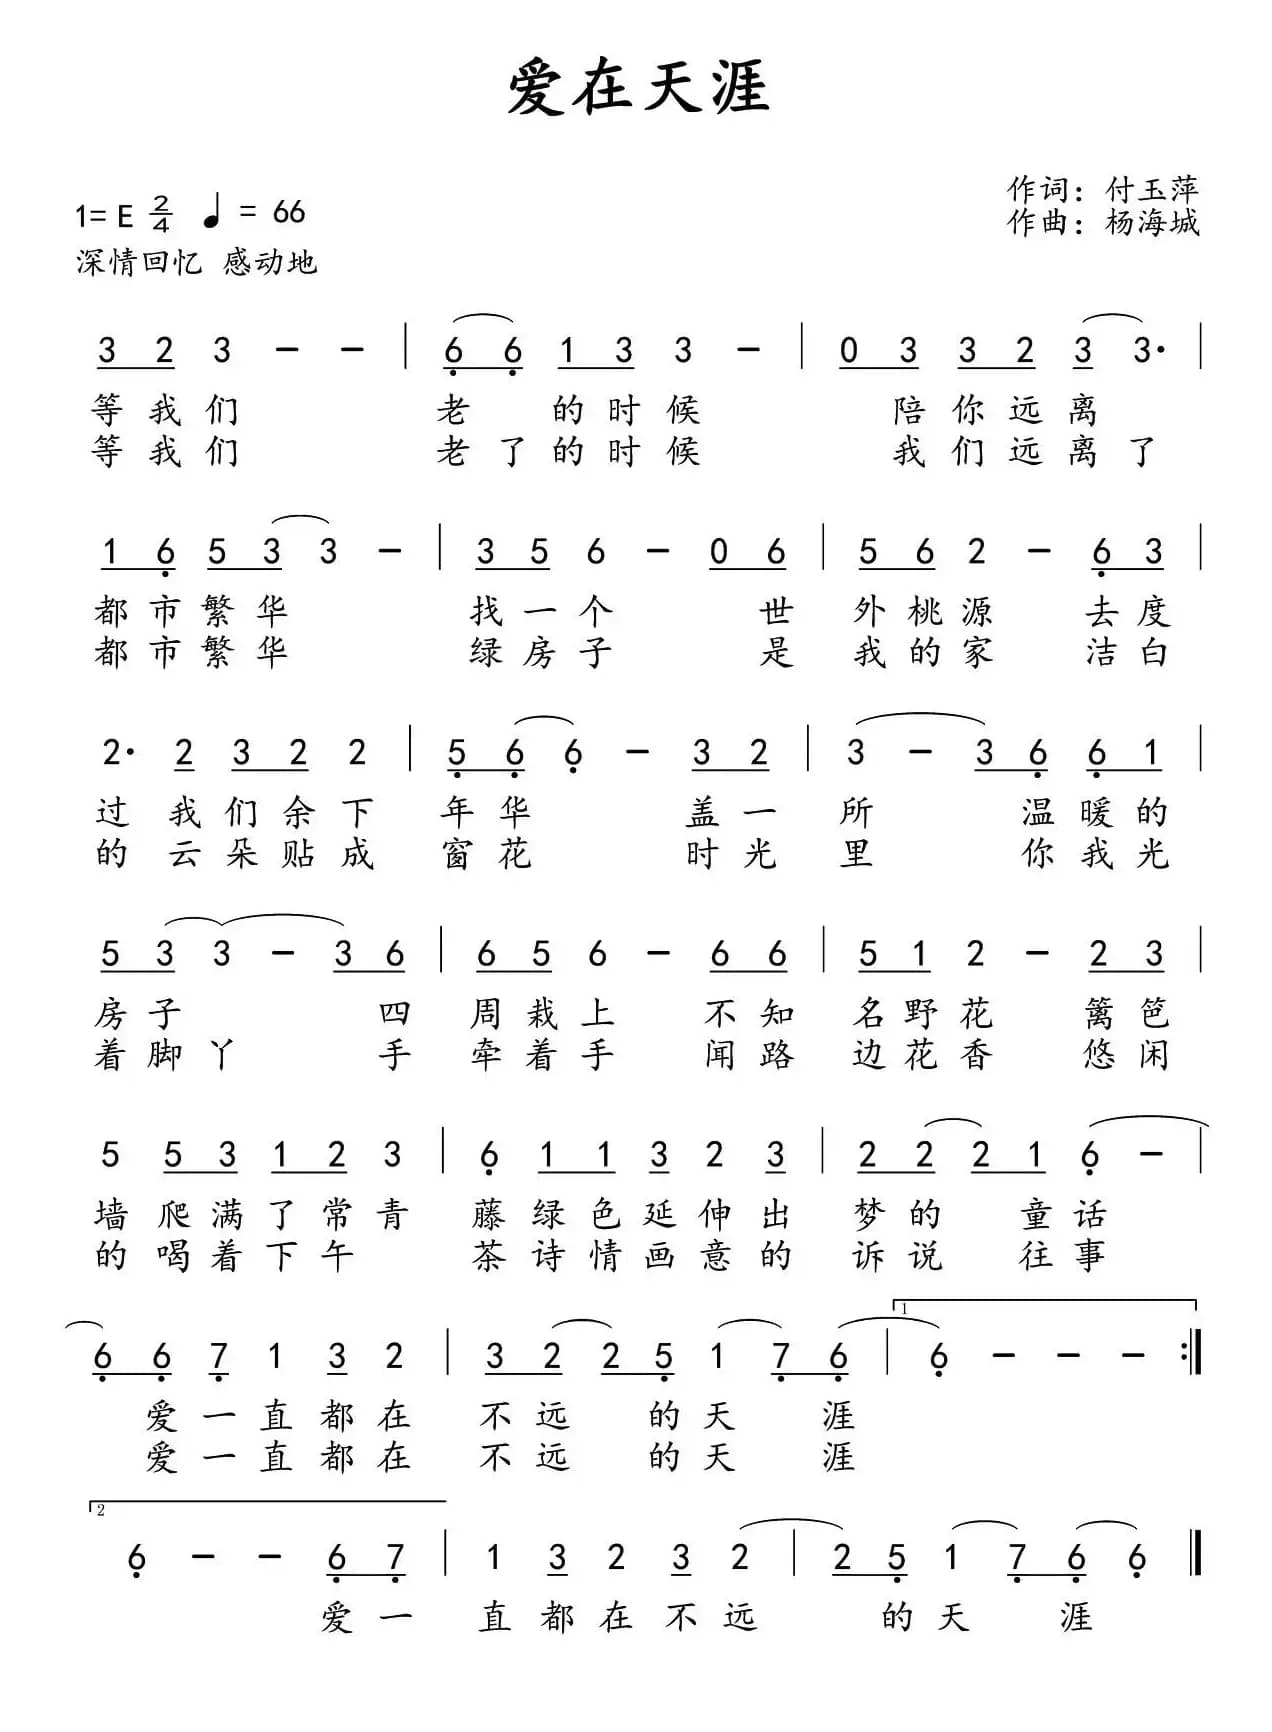 爱在天涯
作词：付玉萍
1=E 2/4 ♩= 66
作曲：杨海城
深情回忆 感动地
3 2 3 - - | 6 6 1 3 3 - | 0 3 3 2 3 3· |
等我们 老 的时候 陪你远离
等我们 老了的时候 我们远离了
1 6 5 3 3 - | 3 5 6 - 0 6 | 5 6 2 - 6 3 |
都市繁华 找一个 世 外桃源 去度
都市繁华 绿房子 是 我的家 洁白
2· 2 3 2 2 | 5 6 6 - 3 2 | 3 - 3 6 6 1 |
过我们余下 年华 盖一 所 温暖的
的云朵贴成 窗花 时光 里 你我光
5 3 3 - 3 6 | 6 5 6 - 6 6 | 5 1 2 - 2 3 |
房子 四 周栽上 不知 名野花 篱笆
着脚丫 手 牵着手 闻路 边花香 悠闲
5 5 3 1 2 3 | 6 1 1 3 2 3 | 2 2 2 1 6 - |
墙爬满了常青 藤绿色延伸出 梦的 童话
的喝着下午 茶诗情画意的 诉说 往事
1
6 6 7 1 3 2 | 3 2 2 5 1 7 6 | 6 - - - :|
爱一直都在 不远 的天 涯
爱一直都在 不远 的天 涯
2
6 - - 6 7 | 1 3 2 3 2 | 2 5 1 7 6 6 |
爱一 直都在不远 的天 涯